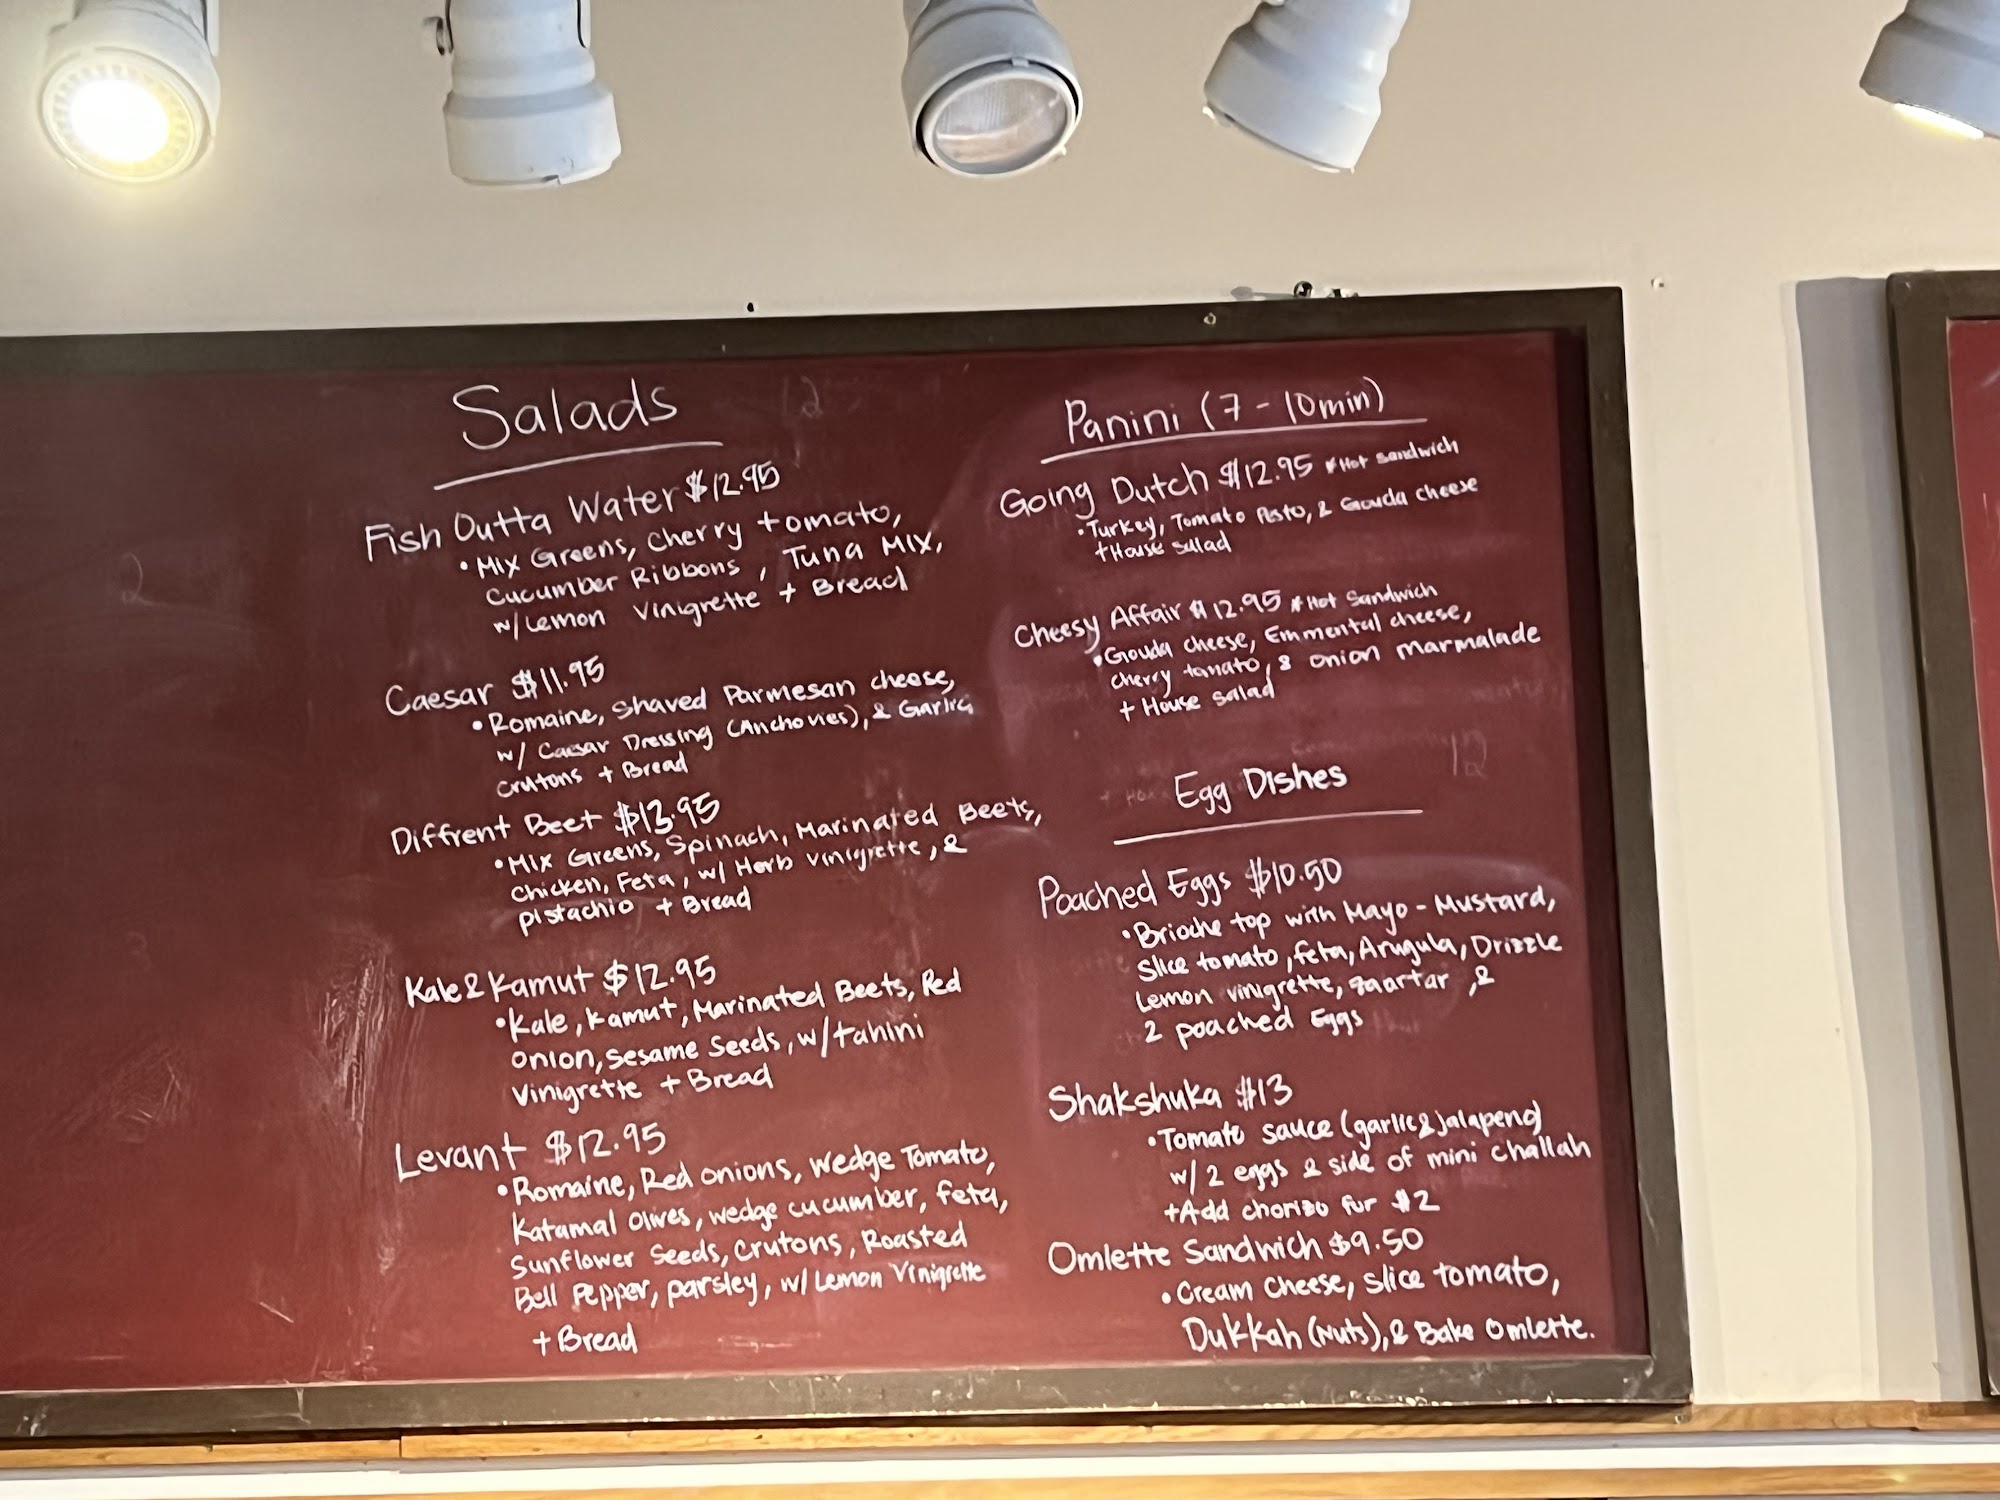 Salads
Fish Outta Water $12.95
• Mix Greens, Cherry tomato,
Cucumber Ribbons, Tuna Mix,
w/ Lemon Vinigrette + Bread
Caesar $11.95
• Romaine, Shaved Parmesan cheese,
w/ Caesar Dressing (Anchovies), & Garlic
Crutons + Bread
Diffrent Beet $13.95
• Mix Greens, Spinach, Marinated Beets,
Chicken, Feta, w/ Herb Vinigrette, &
pistachio + Bread
Kale & Kamut $12.95
• Kale, Kamut, Marinated Beets, Red
Onion, Sesame Seeds, w/ tahini
Vinigrette + Bread
Levant $12.95
• Romaine, Red Onions, Wedge Tomato,
Katamal Olives, wedge cucumber, feta,
Sunflower Seeds, Crutons, Roasted
Bell Pepper, parsley, w/ Lemon Vinigrette
+ Bread
Panini (7 - 10min)
Going Dutch $12.95 *Hot Sandwich
• Turkey, Tomato Pesto, & Gouda cheese
+ House Salad
Cheesy Affair $12.95 *Hot Sandwich
• Gouda cheese, Emmental cheese,
cherry tomato, & onion marmalade
+ House Salad
Egg Dishes
Poached Eggs $10.50
• Brioche top with Mayo - Mustard,
Slice tomato, feta, Arugula, Drizzle
Lemon vinigrette, zaartar, &
2 poached Eggs
Shakshuka $13
• Tomato sauce (garlic & jalapeno)
w/ 2 eggs & side of mini challah
+ Add chorizo for $2
Omlette Sandwich $9.50
• Cream Cheese, Slice tomato,
Dukkah (Nuts), & Bake Omlette.